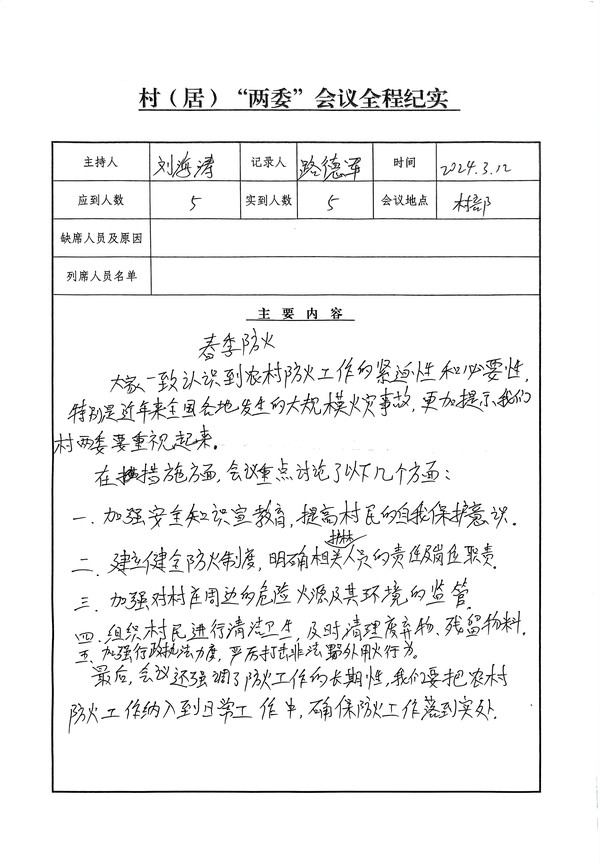 村（居）“两委”会议全程纪实
主持人 刘海涛 记录人 路德军 时间 2024.3.12
应到人数 5 实到人数 5 会议地点 村部
缺席人员及原因
列席人员名单
主要内容
春季防火
大家一致认识到农村防火工作的紧迫性和必要性，
特别是近年来全国各地发生的大规模火灾事故，更加提示我们
村两委要重视起来。
在措施方面，会议重点讨论了以下几个方面：
一．加强安全知识宣教育，提高村民的自我保护意识．
二．建立健全防火制度，明确相关人员的责任及岗位职责．
三．加强对村庄周边的危险火源及其环境的监管．
四．组织村民进行清洁卫生，及时清理废弃物、残留物料．
五．加强行政执法力度，严厉打击非法野外用火行为。
最后，会议还强调了防火工作的长期性，我们要把农村
防火工作纳入到日常工作中，确保防火工作落到实处．